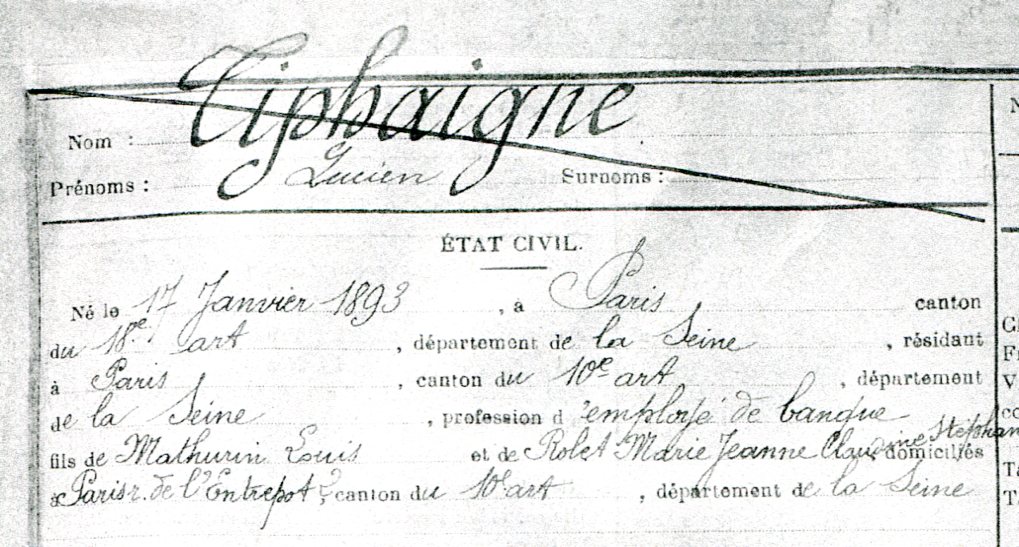 Nom : Tiphaigne
Prénoms : Lucien Surnoms :
ÉTAT CIVIL.
Né le 17 Janvier 1893, à Paris canton
du 18e art, département de la Seine, résidant
à Paris, canton du 10e art, département
de la Seine, profession d'employé de banque
fils de Mathurin Louis et de Rolet Marie Jeanne Claudine Stephan domiciliés
à Paris r. de l'Entrepot, canton du 10e art, département de la Seine